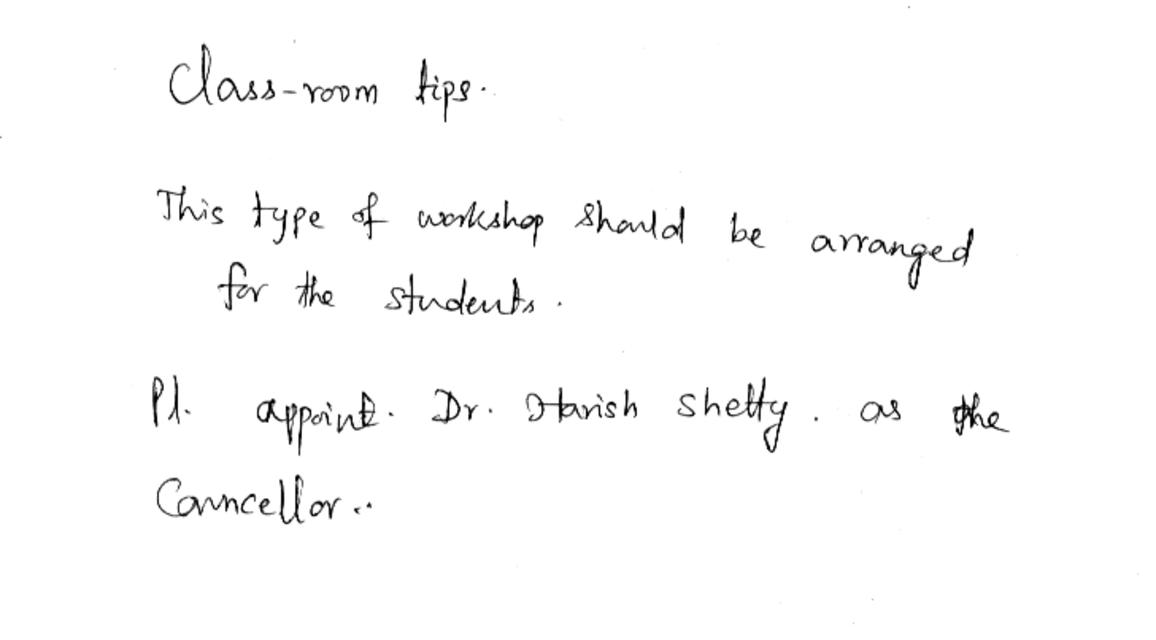 Class-room tips.
This type of workshop should be arranged
for the students.
Pl. appoint. Dr. Harish Shetty. as the
Councellor..